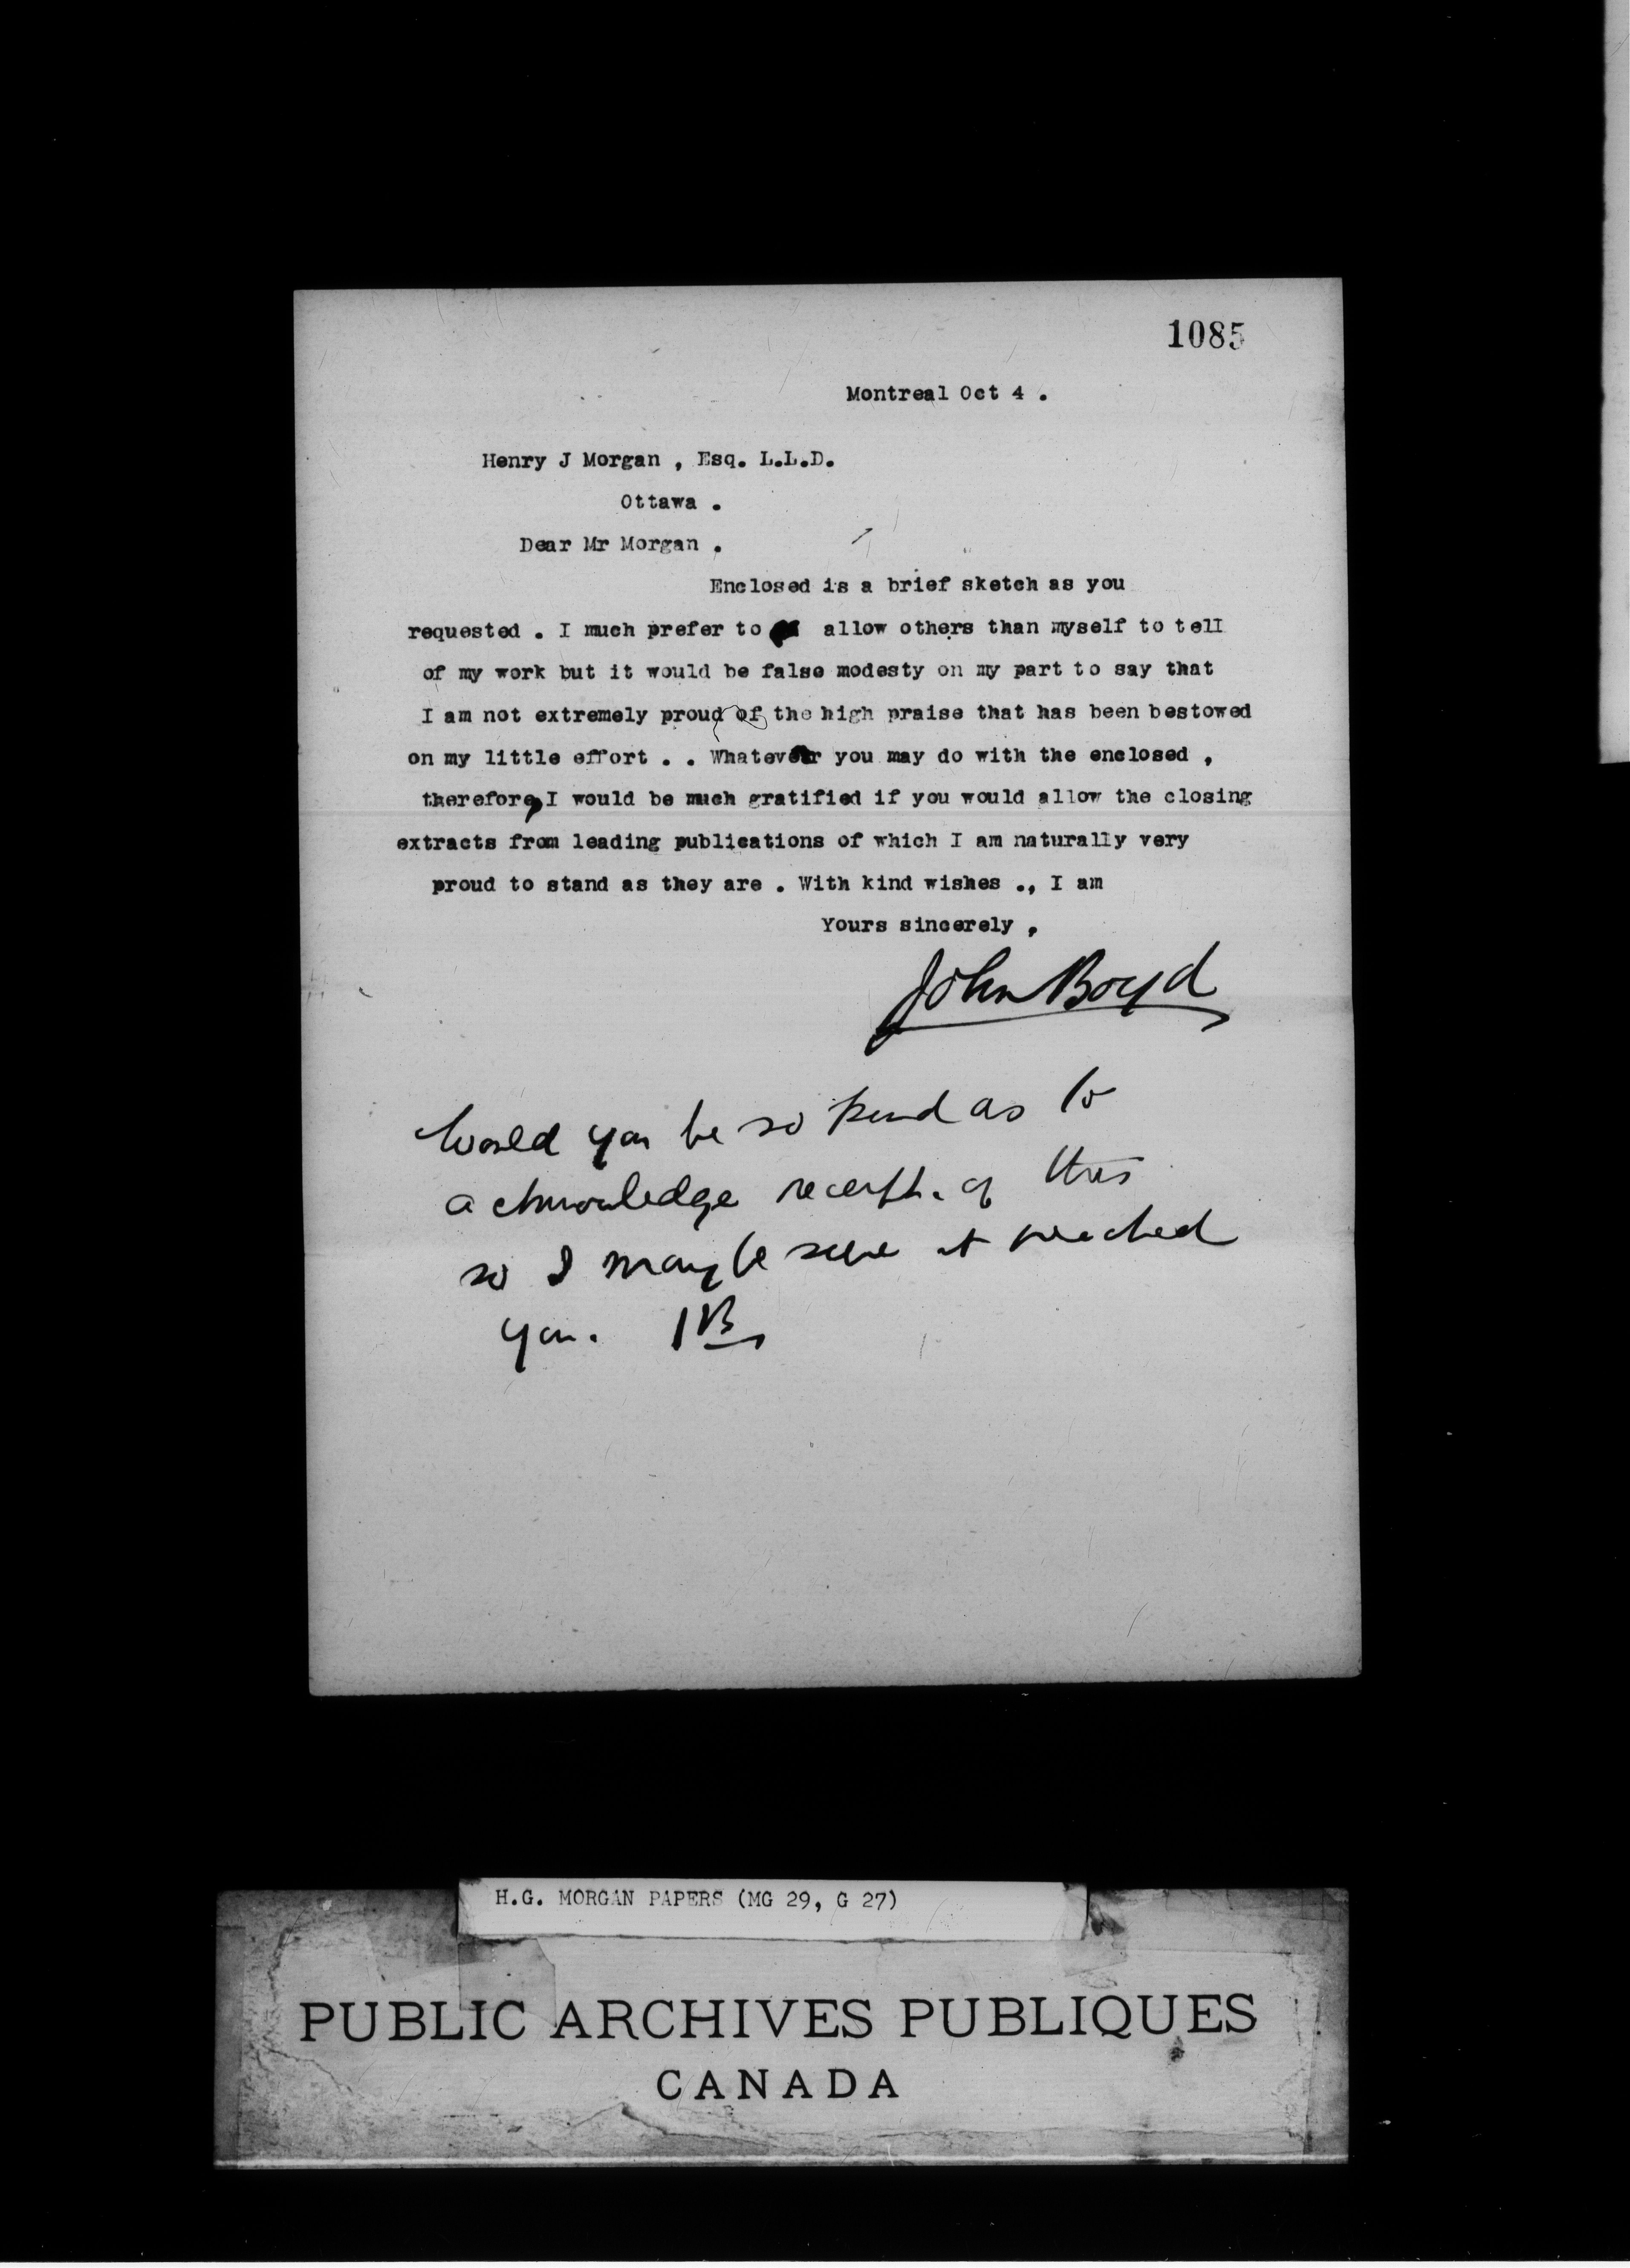 1085
Montreal Oct 4 .
Henry J Morgan , Esq. L.L.D.
Ottawa .
Dear Mr Morgan .
Enclosed is a brief sketch as you
requested . I much prefer to allow others than myself to tell
of my work but it would be false modesty on my part to say that
I am not extremely proud of the high praise that has been bestowed
on my little effort . . Whatever you may do with the enclosed ,
therefore, I would be much gratified if you would allow the closing
extracts from leading publications of which I am naturally very
proud to stand as they are . With kind wishes ., I am
Yours sincerely ,
John Boyd
Would you be so kind as to
acknowledge receipt. of this
so I may be sure it reached
you. JB
H.G. MORGAN PAPERS (MG 29, G 27)
PUBLIC ARCHIVES PUBLIQUES
CANADA